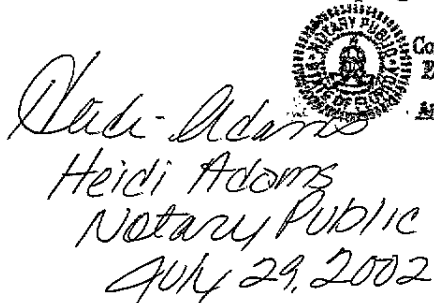 NOTARY PUBLIC
Co
Heidi Adams
Heidi Adams
Notary Public
July 29, 2002